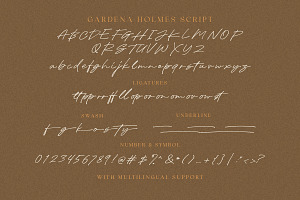 GARDENA HOLMES SCRIPT
ABCDEFGHIJKLMNOP
QRSTUVWXYZ
abcdefghijklmnopqrstuvwxyz
LIGATURES
SWASH
UNDERLINE
f g k o s t y
NUMBER & SYMBOL
0123456789!@#$%^&*()_+{}[]:<>?
WITH MULTILINGUAL SUPPORT